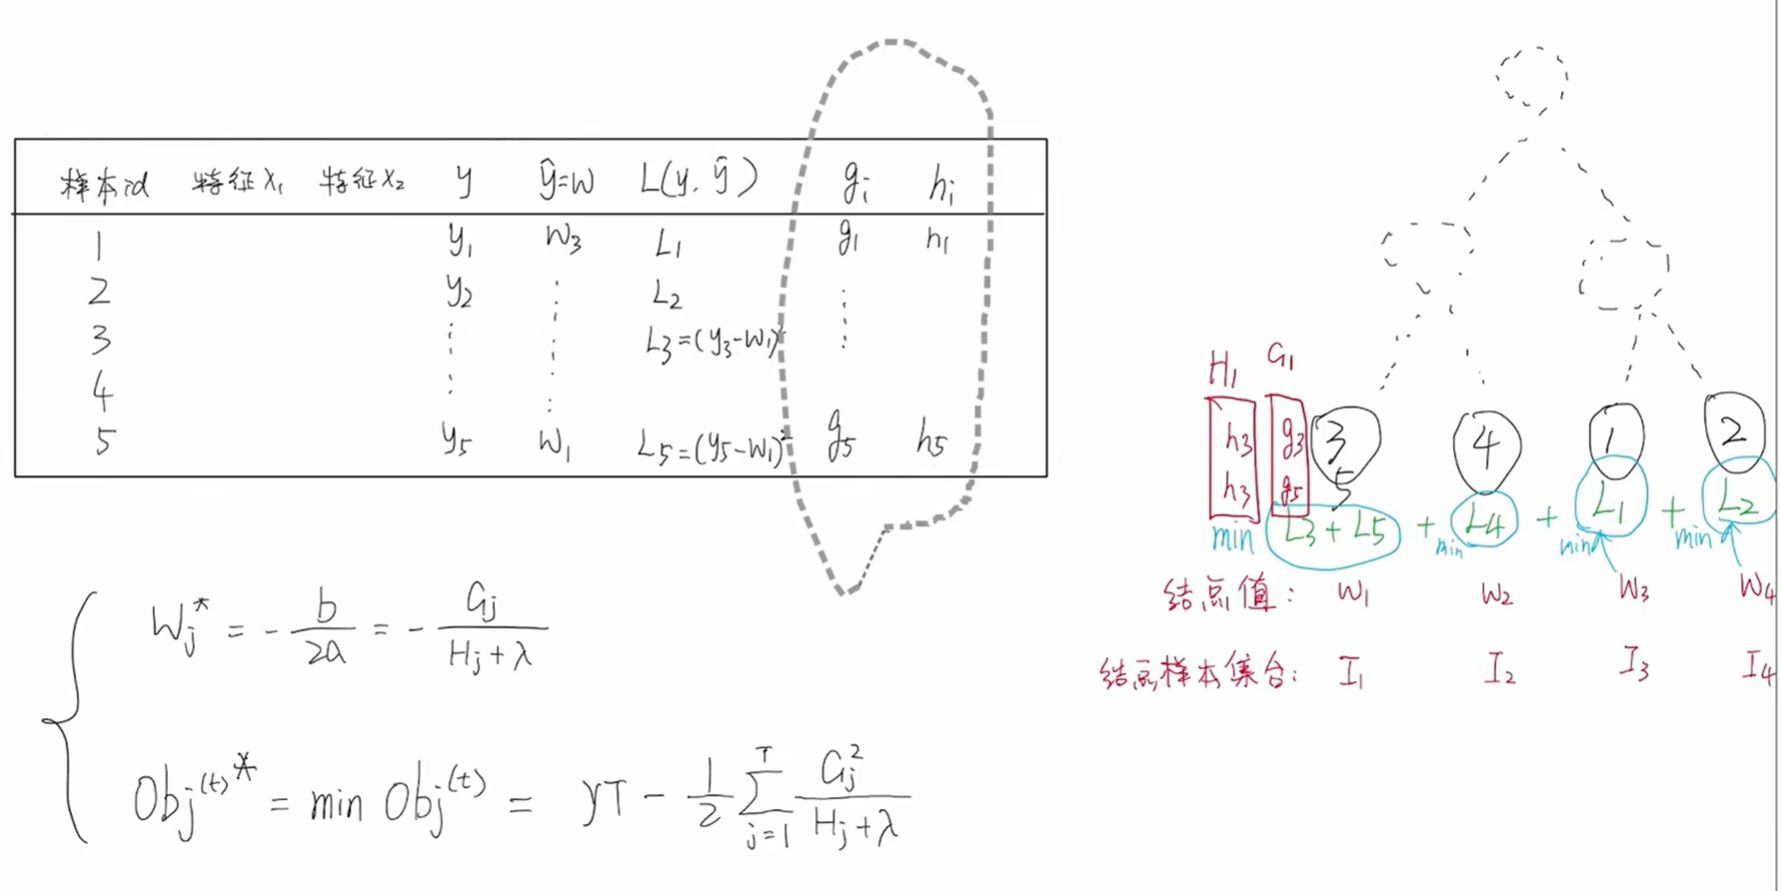 样本id 特征X₁ 特征X₂ y ŷ=w L(y, ŷ) gᵢ hᵢ
1 y₁ w₃ L₁ g₁ h₁
2 y₂ ⋮ L₂ ⋮
3 ⋮ ⋮ L₃=(y₃-w₁)² ⋮
4 ⋮ ⋮
5 y₅ w₁ L₅=(y₅-w₁)² g₅ h₅
Wⱼ* = - b/2a = - Gⱼ/(Hⱼ+λ)
Obj⁽ᵗ⁾* = min Obj⁽ᵗ⁾ = γT - 1/2 ∑ⱼ₌₁ᵀ Gⱼ²/(Hⱼ+λ)
H₁ G₁
h₃ g₃ 3 4 1 2
h₃ g₅ 5
min L₃ + L₅ + min L₄ + min L₁ + min L₂
结点值: W₁ W₂ W₃ W₄
结点样本集合: I₁ I₂ I₃ I₄